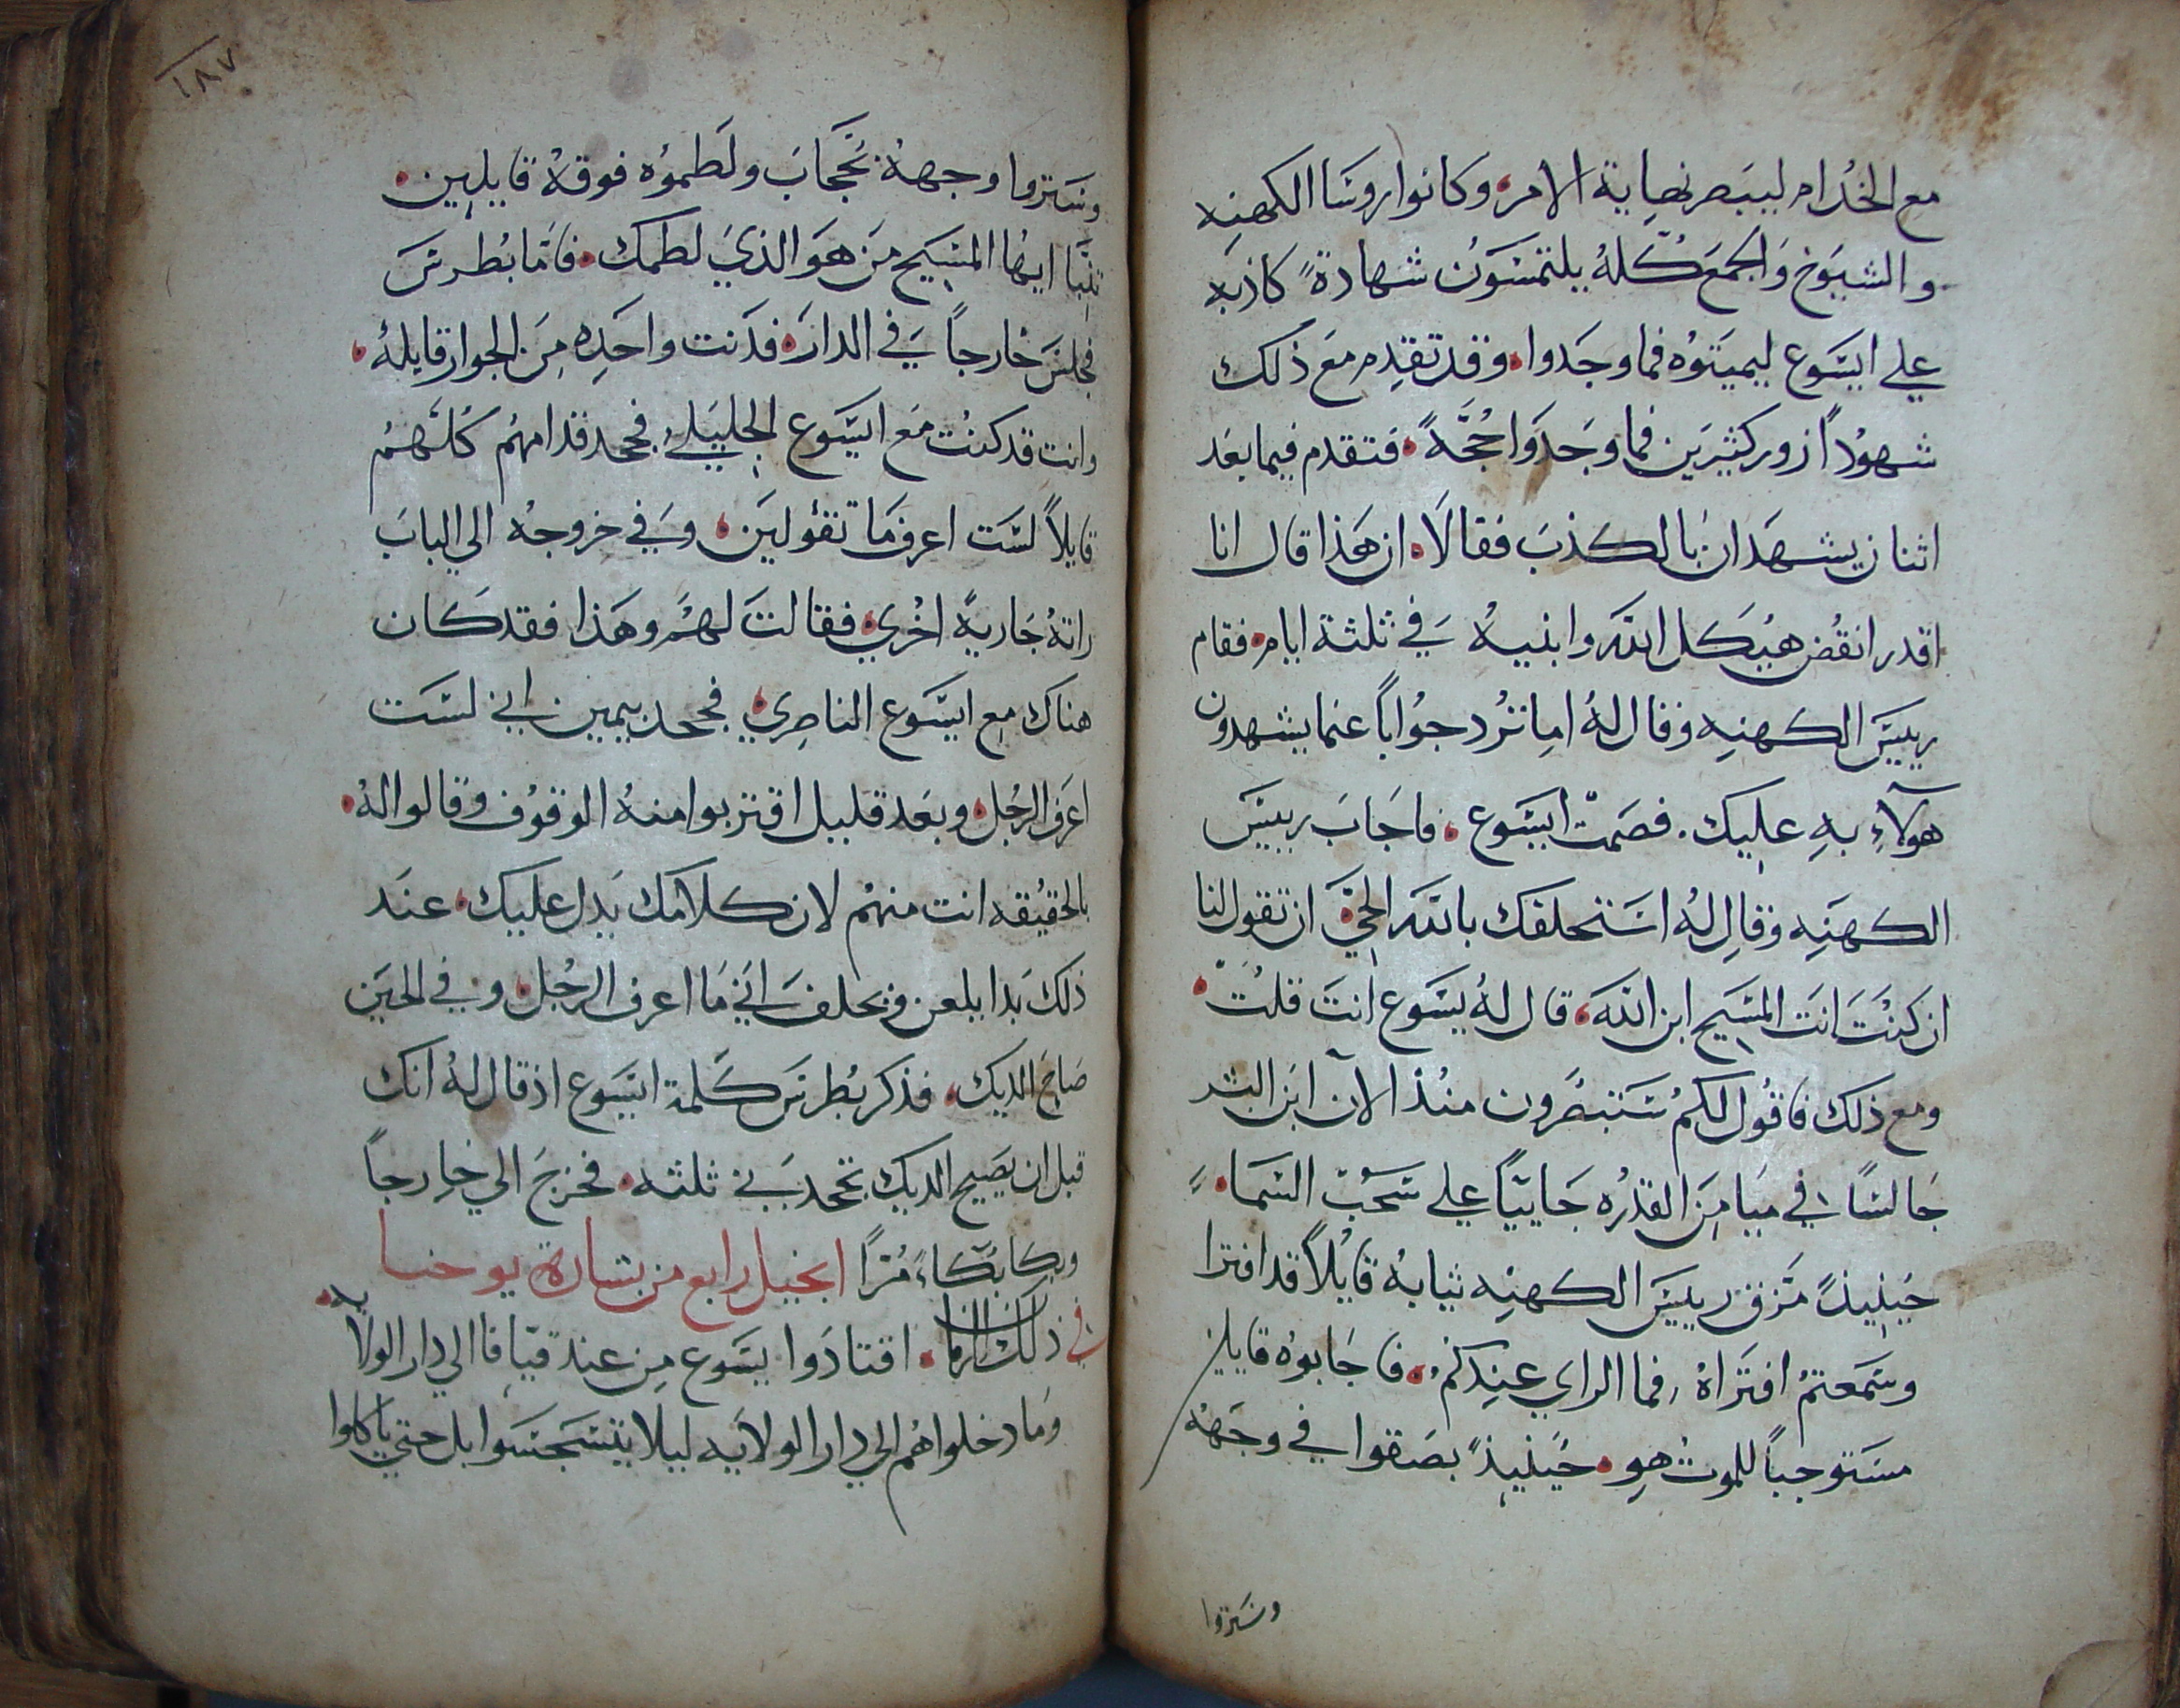 مع الخدام ليبصر نهاية الامر وكانوا روسا الكهنه
والشيوخ والجمع كله يلتمسون شهادة كاذبه
علي ايسوع ليميتوه فما وجدوا وقد تقدم مع ذلك
شهودا زور كثيرين فما وجدوا حجة فتقدم فيما بعد
اثنان يشهدان بالكذب فقالا ان هذا قال انا
اقدر انقض هيكل الله وابنيه في ثلثة ايام فقام
رييس الكهنه وقال له اما ترد جوابا عنما يشهدون
هولاء به عليك فصمت ايسوع فاجاب رييس
الكهنه وقال له استحلفك بالله الحي ان تقول لنا
ان كنت انت المسيح ابن الله قال له يسوع انت قلت
ومع ذلك فاقول لكم ستبصرون منذ الان ابن البشر
جالسا في ميامن القدره جاييا علي سحب السما
حينيذ مزق رييس الكهنه ثيابه قايلا قد افترا
وسمعتم افتراه فما الراي عندكم فاجابوه قايلين
مستوجبا للموت هو حينيذ بصقوا في وجهه
وستروا
١٨٧
وستروا وجهه بحجاب ولطموه فوقه قايلين
تنبا ايها المسيح من هو الذي لطمك فاما بطرس
فجلس خارجا في الدار فدنت واحده من الجوار قايله
وانت قد كنت مع ايسوع الجليلي فجحد قدامهم كلهم
قايلا لست اعرف ما تقولين وفي خروجه الي الباب
راته جارية اخري فقالت لهم وهذا فقد كان
هناك مع ايسوع الناصري فجحد بيمين اني لست
اعرف الرجل وبعد قليل اقتربوا منه الوقوف وقالوا له
بالحقيقه انت منهم لان كلامك يدل عليك عند
ذلك بدا يلعن ويحلف انني ما اعرف الرجل وفي الحين
صاح الديك فذكر بطرس كلمة ايسوع اذ قال له انك
قبل ان يصيح الديك تجحدني ثلثه فخرج الي خارجا
وبكا بكاء مرا انجيل رابع من بشارة يوحنا
في ذلك الزمان اقتادوا يسوع من عند قيافا الي دار الولايه
وما دخلوا هم الي دار الولايه ليلا يتنجسوا بل حتي ياكلوا